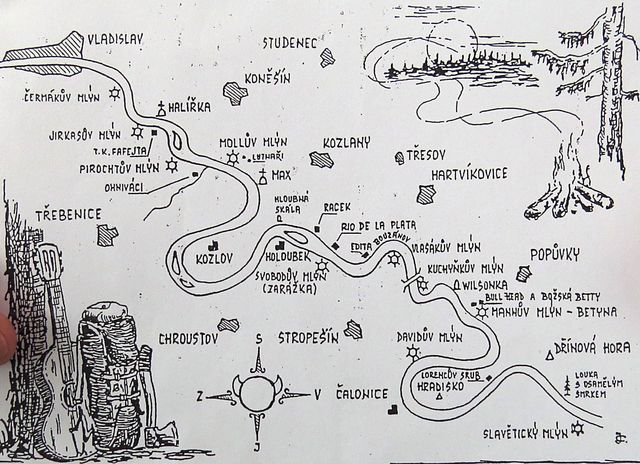 VLADISLAV
STUDENEC
KONĚŠÍN
ČERMÁKŮV MLÝN
HALÍŘKA
JIRKASŮV MLÝN
T.K. FAFEJTA
MOLLŮV MLÝN
LUTNAŘI
KOZLANY
TŘESOV
PIROCHTŮV MLÝN
OHNIVÁCI
MAX
HARTVÍKOVICE
HLOUBNÁ
SKÁLA
RACEK
TŘEBENICE
RIO DE LA PLATA
EDITA
BOUZÁKOV
KOZLOV
HOLOUBEK
VLASÁKŮV MLÝN
POPŮVKY
SVOBODŮV MLÝN
(ZARÁŽKA)
KUCHYŇKŮV MLÝN
WILSONKA
BULL HEAD A BOŽSKÁ BETTY
MANHŮV MLÝN - BETYNA
CHROUSTOV
STROPEŠÍN
DAVIDŮV MLÝN
DŘÍNOVÁ HORA
S
Z
V
J
ČALONICE
LORENCŮV SRUB
HRADISKO
LOUKA
S OSAMĚLÝM
SMRKEM
SLAVĚTICKÝ MLÝN